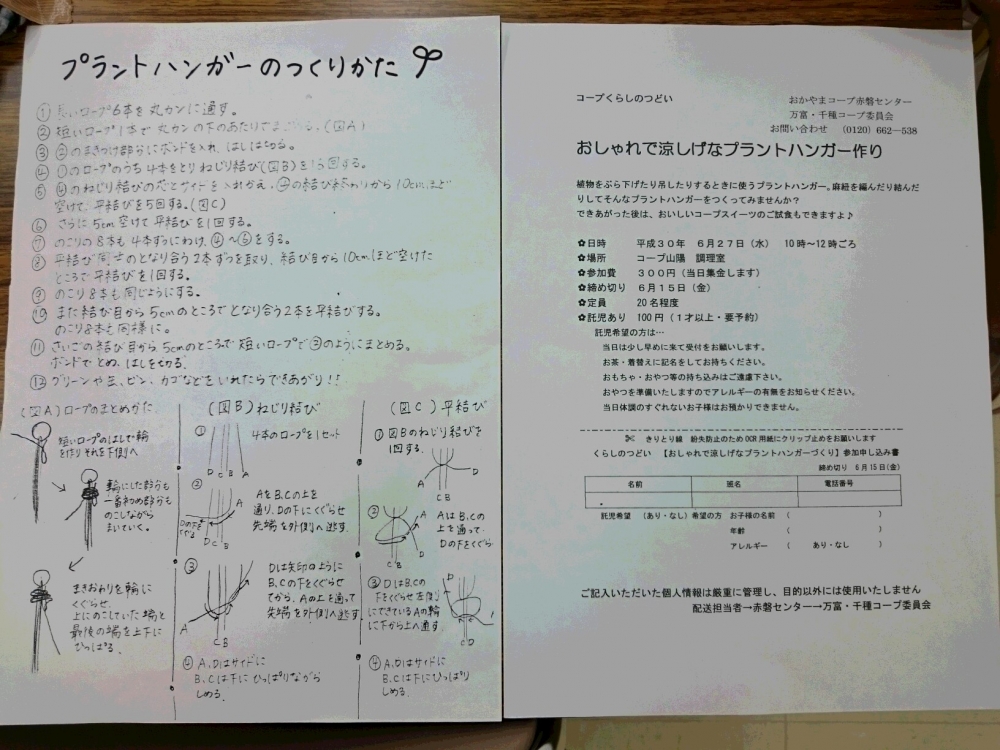 プラントハンガーのつくりかた
① 長いロープ6本を丸カンに通す。
② 短いロープ1本で丸カンの下のあたりでまとめる。(図A)
③ ②のまきつけ部分にボンドを入れ、はしは切る。
④ ①のロープのうち4本をとりねじり結び(図B)を15回する。
⑤ ④のねじり結びのだとサイドを入れかえ、④の結び終わりから10cmほど
空けて、平結びを5回する。(図C)
⑥ さらに5cm空けて平結びを1回する。
⑦ のこりの8本も4本ずつにわけ、④〜⑥をする。
⑧ 平結び同士のとなり合う2本ずつを取り、結び目から10cmほど空けた
ところで平結びを1回する。
⑨ のこり8本も同じようにする。
⑩ また結び目から5cmのところでとなり合う2本を平結びする。
のこり8本も同様に。
⑪ さいごの結び目から5cmのところで短いロープで②のようにまとめる。
ボンドでとめ、はしを切る。
⑫ グリーンや豆、ビン、カゴなどをいれたらできあがり!!
(図A)ロープのまとめかた
短いロープのはしで輪
を作りそれを下側へ
輪にした部分も
一番初め部分も
のこしながら
まいていく。
まきおわりを輪に
くぐらせ、
上にのこしていた端と
最後の端を上下に
ひっぱる。
(図B)ねじり結び
①
4本のロープを1セット
D C B A
②
AをB,Cの上を
通り、Dの下にくぐらせ
先端を外側へ逃す。
Dの下を
くぐる
A
D C B
③
Dは矢印のように
B,Cの下をくぐらせ
てから、Aの上を通って
先端を外側へ逃す。
A
C B
④ A,Dはサイドに
B,Cは下にひっぱりながら
しめる。
(図C)平結び
① 図Bのねじり結びを
1回する。
D
C B
②
AはB,Cの
上を通って
Dの下をくぐら
A
D
C B
③ DはB,Cの
下をくぐらせ左側
にできているAの輪
に下から上へ通す
D
A
C D
④ A,Dはサイドに
B,Cは下にひっぱり
しめる。
コープくらしのつどい
おかやまコープ赤磐センター
万富・千種コープ委員会
お問い合わせ (0120)662-538
おしゃれで涼しげなプラントハンガー作り
植物をぶら下げたり吊したりするときに使うプラントハンガー。麻紐を編んだり結んだ
りしてそんなプラントハンガーをつくってみませんか?
できあがった後は、おいしいコープスイーツのご試食もできますよ♪
✿日時 平成30年 6月27日(水) 10時~12時ごろ
✿場所 コープ山陽 調理室
✿参加費 300円(当日集金します)
✿締め切り 6月15日(金)
✿定員 20名程度
✿託児あり 100円(1才以上・要予約)
託児希望の方は…
当日は少し早めに来て受付をお願いします。
お茶・着替えに記名をしてお持ちください。
おもちゃ・おやつ等の持ち込みはご遠慮下さい。
おやつを準備いたしますのでアレルギーの有無をお知らせください。
当日体調のすぐれないお子様はお預かりできません。
✄ きりとり線 紛失防止のためOCR用紙にクリップ止めをお願いします
くらしのつどい 【おしゃれで涼しげなプラントハンガーづくり】参加申し込み書
締め切り 6月15日(金)
名前 班名 電話番号
託児希望 (あり・なし)希望の方 お子様の名前 ( )
年齢 ( )
アレルギー ( あり・なし )
ご記入いただいた個人情報は厳重に管理し、目的以外には使用いたしません
配送担当者→赤磐センター→万富・千種コープ委員会